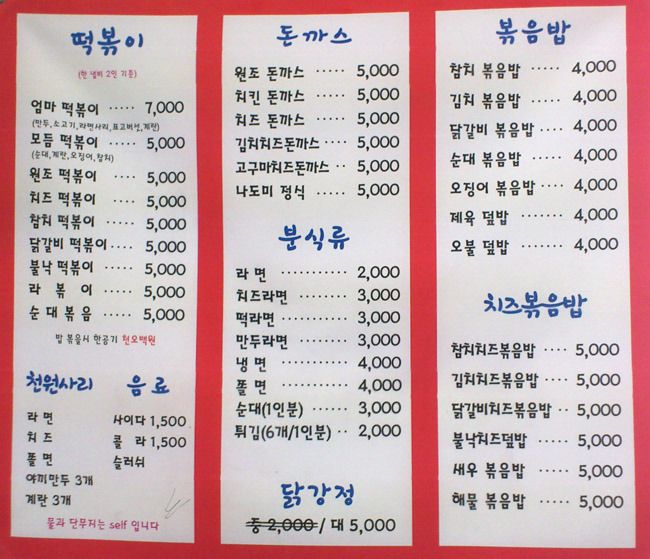 떡볶이
(한 냄비 2인 기준)
엄마 떡볶이 ····· 7,000
(만두,소고기,라면사리,표고버섯,계란)
모듬 떡볶이 ····· 5,000
(순대,계란,오징어,참치)
원조 떡볶이 ····· 5,000
치즈 떡볶이 ····· 5,000
참치 떡볶이 ····· 5,000
닭갈비 떡볶이···· 5,000
불낙 떡볶이 ····· 5,000
라 볶 이 ····· 5,000
순 대 볶 음 ····· 5,000
밥 볶음시 한공기 천오백원
천원사리
라 면
치 즈
쫄 면
야끼만두 3개
계란 3개
음 료
사이다 1,500
콜 라 1,500
슬러쉬
물과 단무지는 self 입니다
돈까스
원조 돈까스 ····· 5,000
치킨 돈까스 ····· 5,000
치즈 돈까스 ····· 5,000
김치치즈돈까스 ·· 5,000
고구마치즈돈까스·· 5,000
나도미 정식 ····· 5,000
분식류
라 면 ··········· 2,000
치즈라면 ·········· 3,000
떡라면 ··········· 3,000
만두라면 ·········· 3,000
냉 면 ··········· 4,000
쫄 면 ··········· 4,000
순대(1인분) ······ 3,000
튀김(6개/1인분) ·· 2,000
닭강정
중 2,000 / 대 5,000
볶음밥
참치 볶음밥 ····· 4,000
김치 볶음밥 ····· 4,000
닭갈비 볶음밥 ···· 4,000
순대 볶음밥 ····· 4,000
오징어 볶음밥 ···· 4,000
제육 덮밥 ····· 4,000
오불 덮밥 ····· 4,000
치즈볶음밥
참치치즈볶음밥 ·· 5,000
김치치즈볶음밥 ·· 5,000
닭갈비치즈볶음밥 ·· 5,000
불낙치즈덮밥 ····· 5,000
새우 볶음밥 ····· 5,000
해물 볶음밥 ····· 5,000